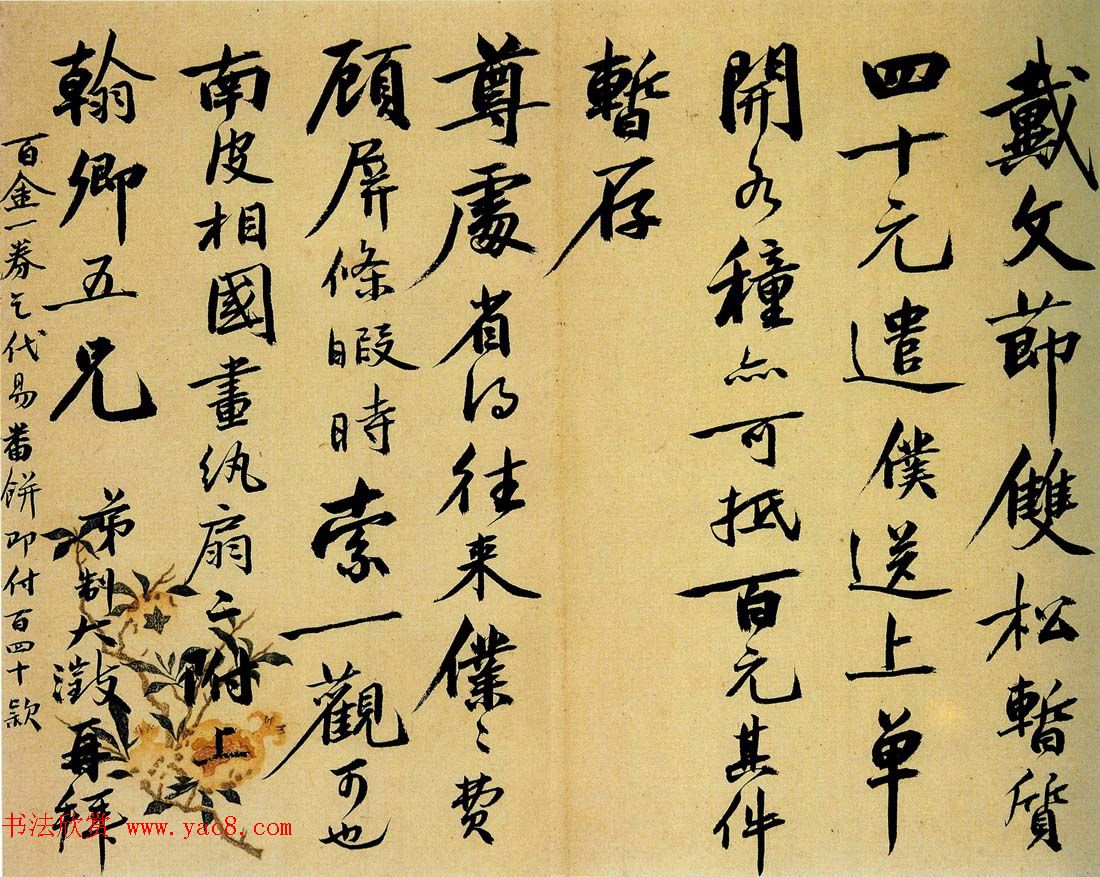 戴文節雙松暫質
四十元遣僕送上單
開各種亦可抵百元其件
暫存
尊處省得往來僕僕之費
顧屏條暇時索一觀可也
南皮相國畫紈扇二附上
翰卿五兄
弟制大澂再拜
百金一券乞代易番餅即付百四十款
书法欣赏 www.yac8.com